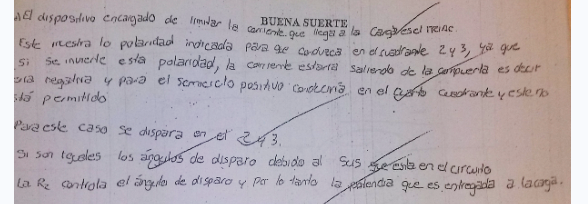 BUENA SUERTE
El dispositivo encargado de limitar la corriente que llega a la carga es el
Este muestra la polaridad indicada para que conduzca en el cuadrante 2 y 3, ya que
si se invierte esta polaridad, la corriente estaría saliendo de la compuerta es decir
sería negativa y para el semiciclo positivo conduciría en el cuarto cuadrante y este no
está permitido
Para este caso se dispara en el 2 y 3.
Si son iguales los ángulos de disparo debido al Sus que esta en el circuito
La R2 controla el ángulo de disparo y por lo tanto la potencia que es entregada a la carga.